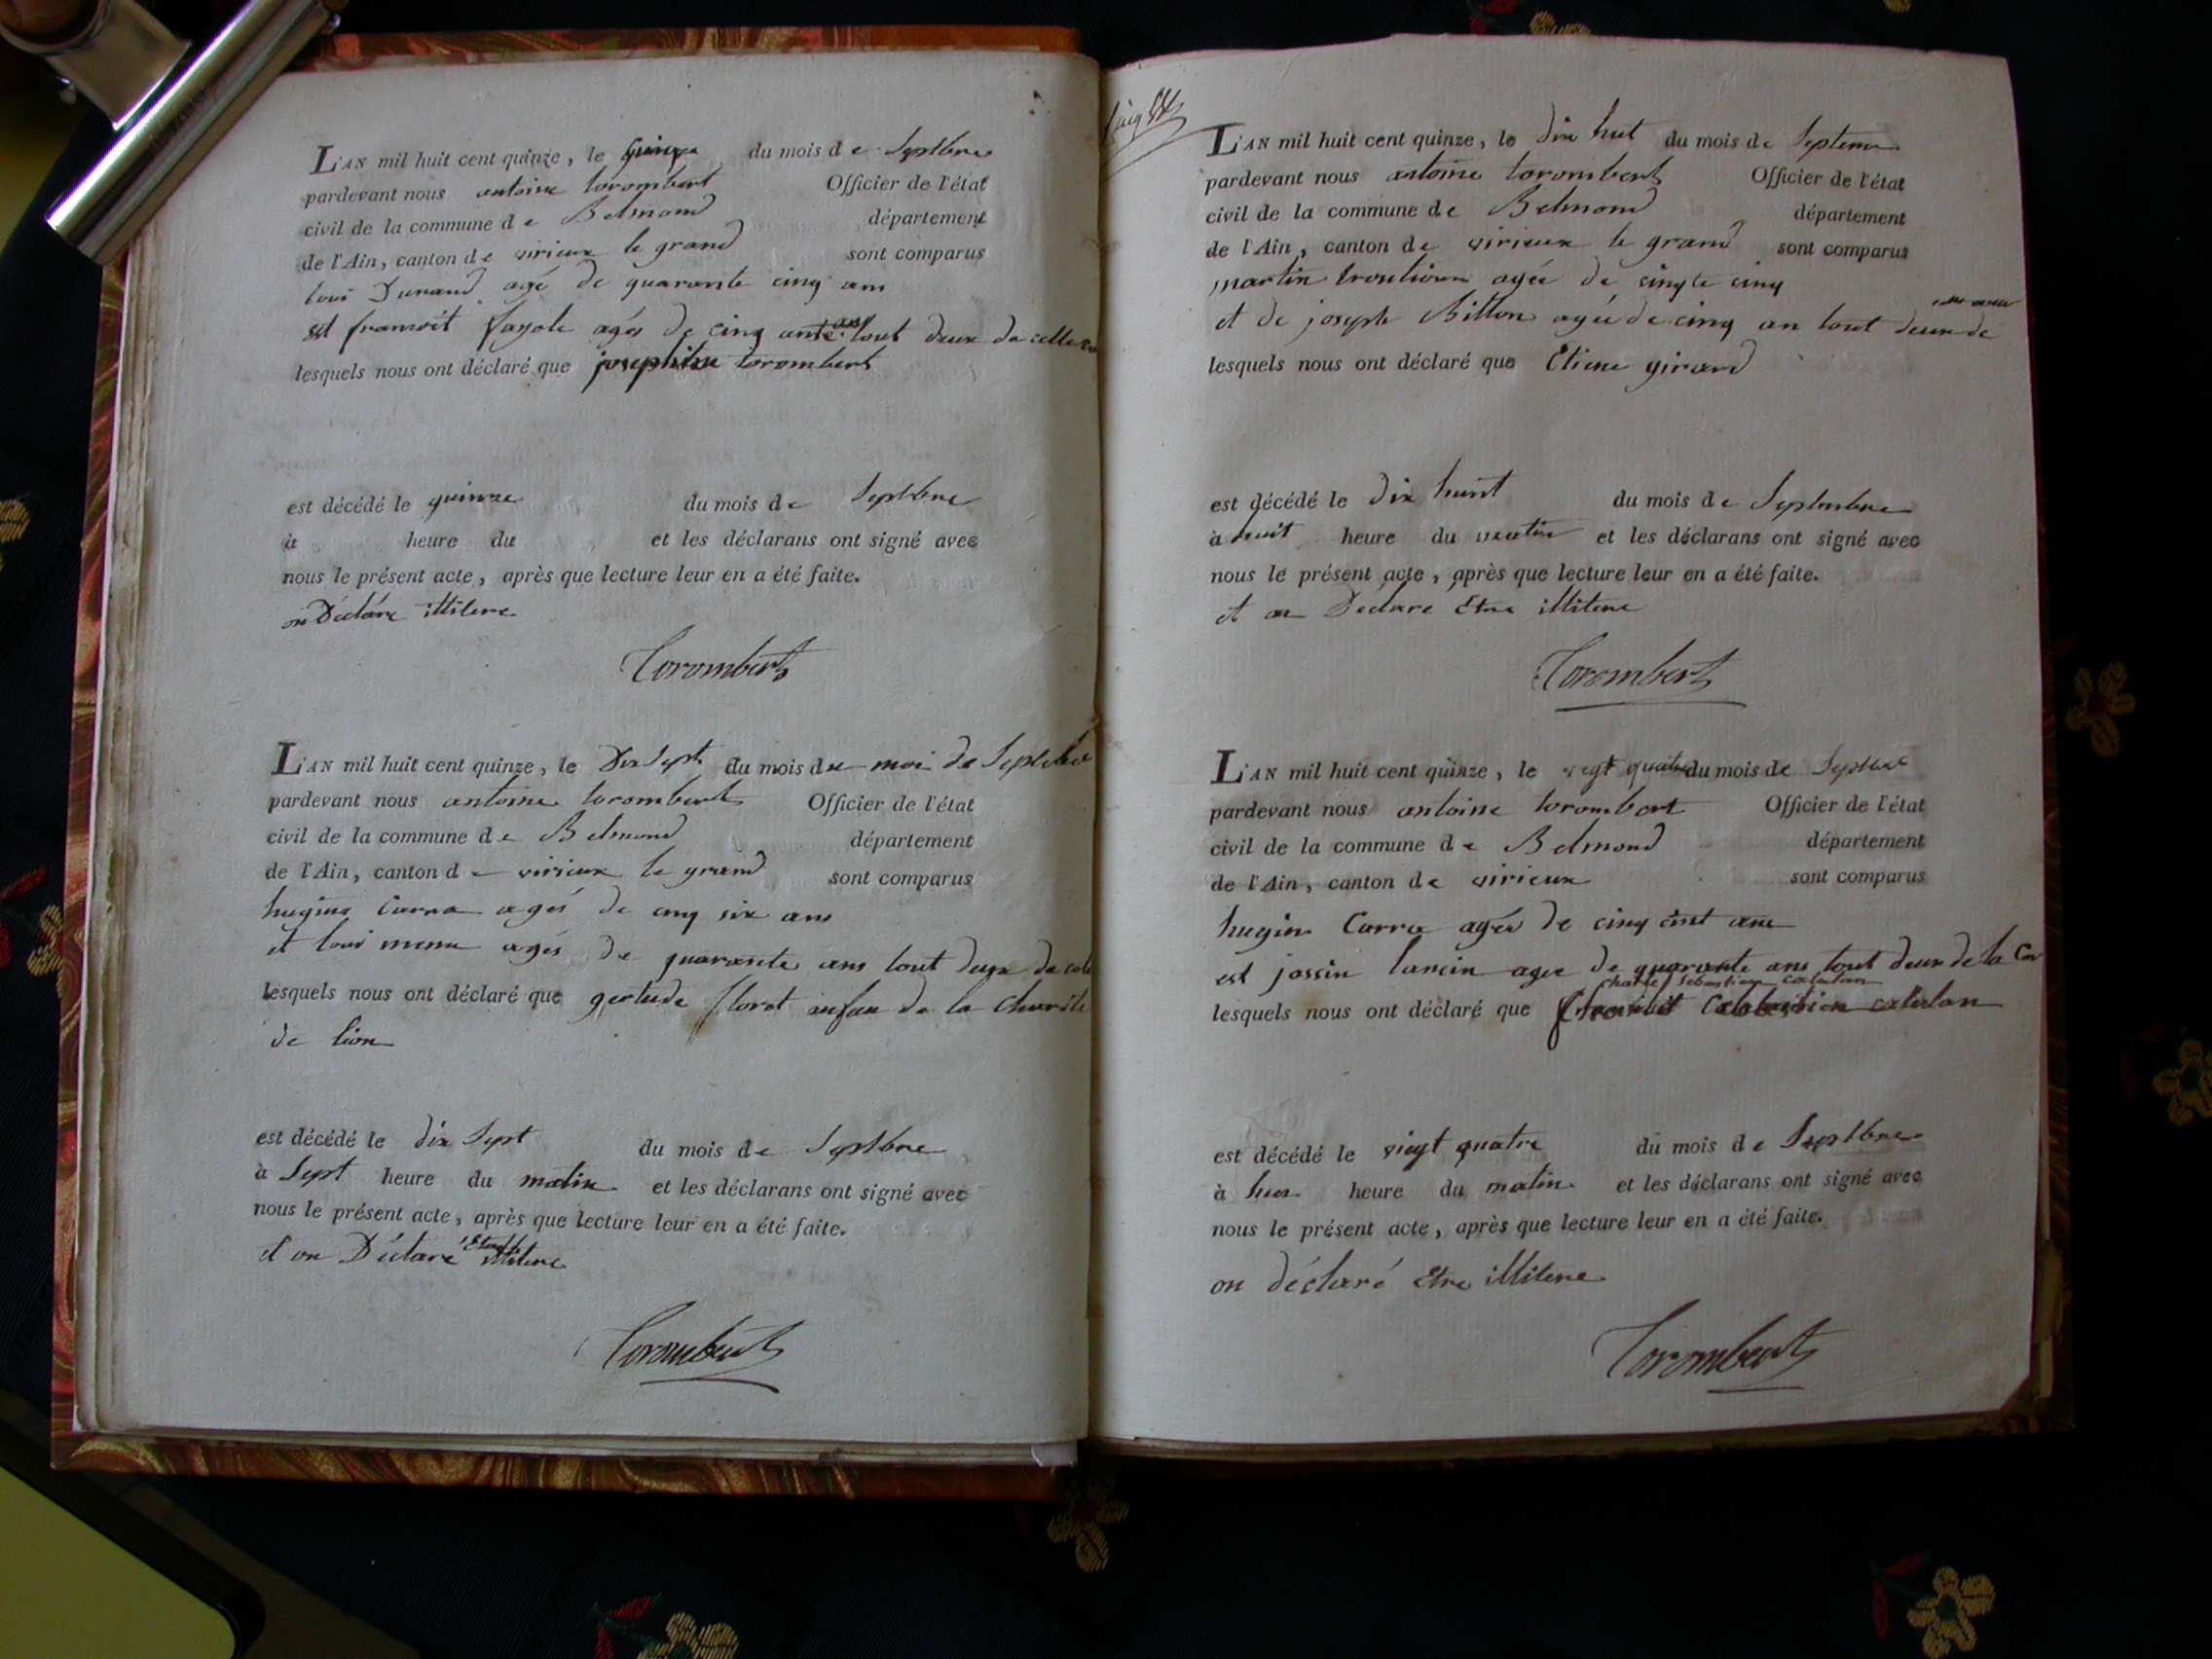 L'AN mil huit cent quinze, le quinze du mois de Septbre
pardevant nous antoine torombert Officier de l'état
civil de la commune de Belmond département
de l'Ain, canton de virieux le grand sont comparus
loui Durand agé de quarante cinq ans
est framoit fayole agés de cinq tout deux de celle
lesquels nous ont déclaré que josephine torombert
est décédé le quinze du mois de Septbre
à heure du et les déclarans ont signé avec
nous le présent acte, après que lecture leur en a été faite.
on Déclare illitere
Torombert
L'AN mil huit cent quinze, le Dix Sept du mois du moi de Septebre
pardevant nous antoine torombert Officier de l'état
civil de la commune de Belmond département
de l'Ain, canton de virieux le grand sont comparus
hugine Carra agés de cinq six ans
et loui agés de quarante ans tout deux de
lesquels nous ont déclaré que gertude floret enfan de la Charite
de lion
est décédé le dix Sept du mois de Septbre
à Sept heure du matin et les déclarans ont signé avec
nous le présent acte, après que lecture leur en a été faite.
et on Déclaré Etre illitere
Torombert
L'AN mil huit cent quinze, le dix huit du mois de Septem
pardevant nous antoine torombert Officier de l'état
civil de la commune de Belmond département
de l'Ain, canton de virieux le grand sont comparus
martin agée de cinq
et de joseph Bitton agée de cinq an tout deux de
lesquels nous ont déclaré que Etiene girard
est décédé le dix huit du mois de Septembre
à huit heure du matin et les déclarans ont signé avec
nous le présent acte, après que lecture leur en a été faite.
et on Declare Etre illitere
Torombert
L'AN mil huit cent quinze, le vegt quatre du mois de Septbre
pardevant nous antoine torombert Officier de l'état
civil de la commune de Belmond département
de l'Ain, canton de virieux sont comparus
hugin Carra agés de cinq ans
est jossin lancin agee de quarante ans tout deux de la Co
charle sebastien catalan
lesquels nous ont déclaré que catalan
est décédé le viegt quatre du mois de Septbre
à heure du matin et les déclarans ont signé avec
nous le présent acte, après que lecture leur en a été faite.
on déclaré Etre illitere
Torombert